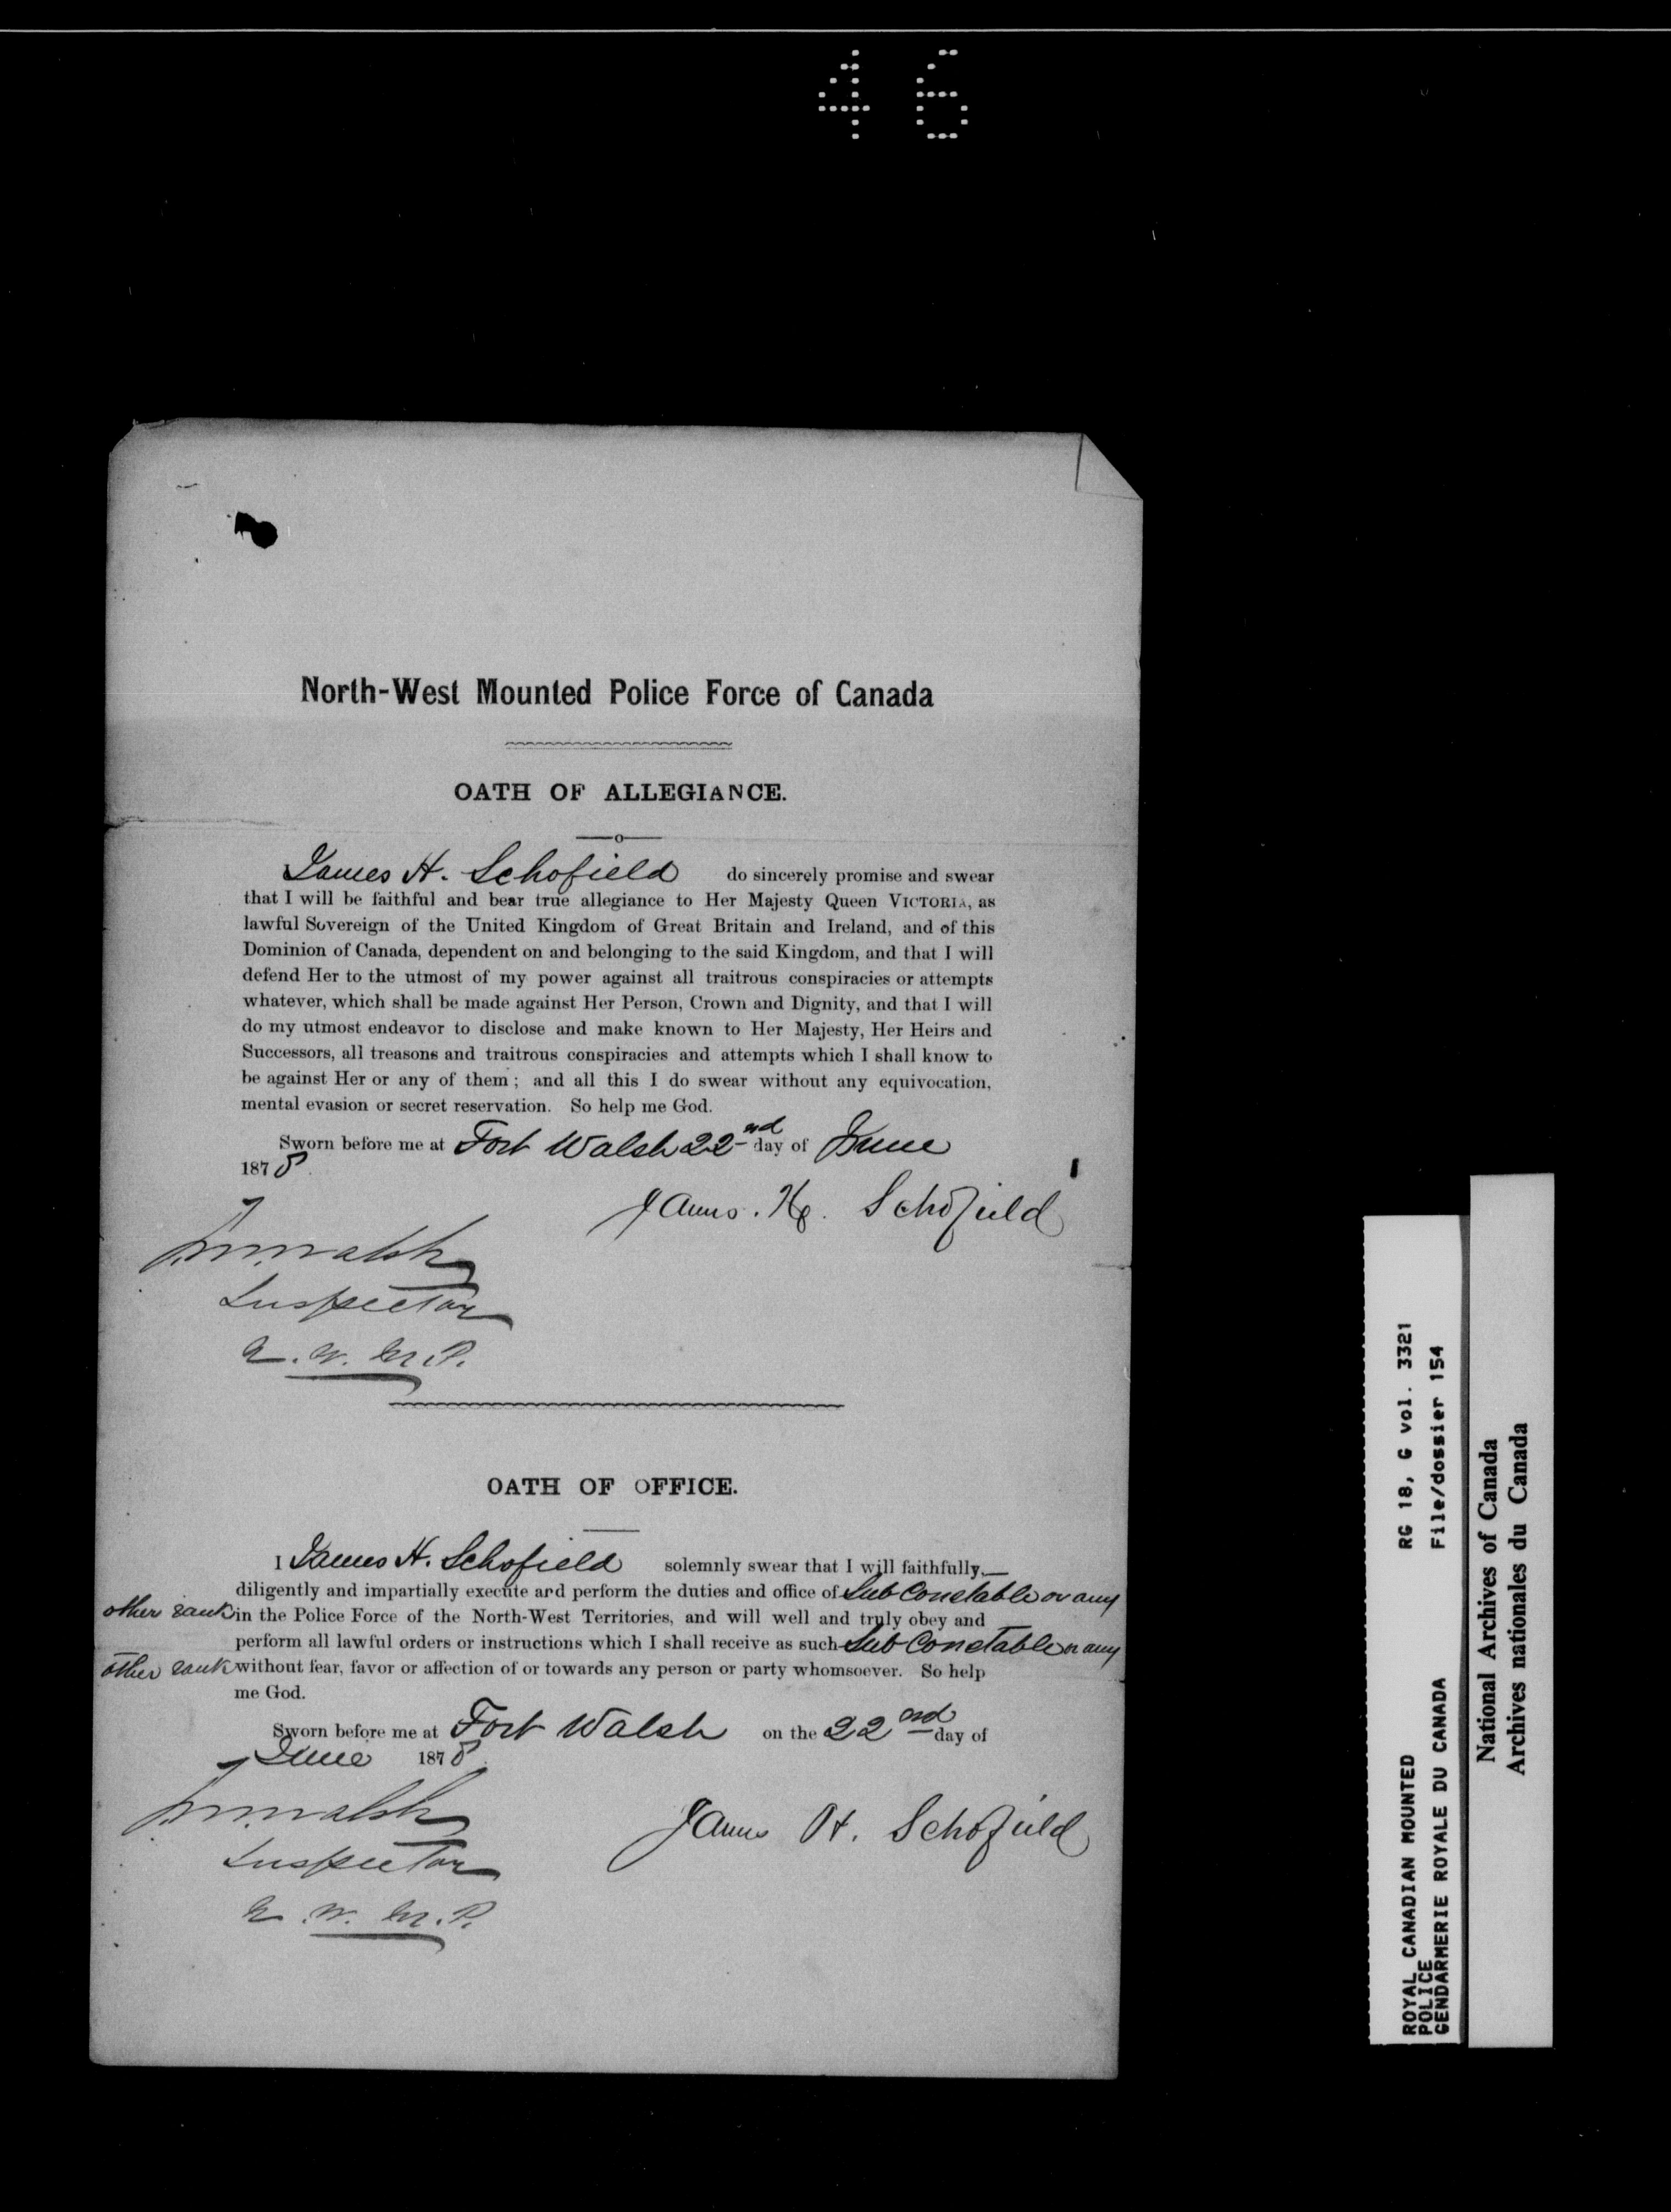 46
North-West Mounted Police Force of Canada
OATH OF ALLEGIANCE.
James H. Schofield do sincerely promise and swear
that I will be faithful and bear true allegiance to Her Majesty Queen VICTORIA, as
lawful Sovereign of the United Kingdom of Great Britain and Ireland, and of this
Dominion of Canada, dependent on and belonging to the said Kingdom, and that I will
defend Her to the utmost of my power against all traitrous conspiracies or attempts
whatever, which shall be made against Her Person, Crown and Dignity, and that I will
do my utmost endeavor to disclose and make known to Her Majesty, Her Heirs and
Successors, all treasons and traitrous conspiracies and attempts which I shall know to
be against Her or any of them; and all this I do swear without any equivocation,
mental evasion or secret reservation. So help me God.
Sworn before me at Fort Walsh 22nd day of June
1878.
James. H. Schofield
J.M. Walsh
Inspector
N. W. M. P.
OATH OF OFFICE.
I James H. Schofield solemnly swear that I will faithfully,
diligently and impartially execute and perform the duties and office of Sub Constable or any
other rank in the Police Force of the North-West Territories, and will well and truly obey and
perform all lawful orders or instructions which I shall receive as such Sub Constable or any
other rank without fear, favor or affection of or towards any person or party whomsoever. So help
me God.
Sworn before me at Fort Walsh on the 22nd day of
June 1878
J.M. Walsh
James H. Schofield
Inspector
N. W. M. P.
ROYAL CANADIAN MOUNTED RG 18, G vol. 3321
POLICE
GENDARMERIE ROYALE DU CANADA File/dossier 154
National Archives of Canada
Archives nationales du Canada